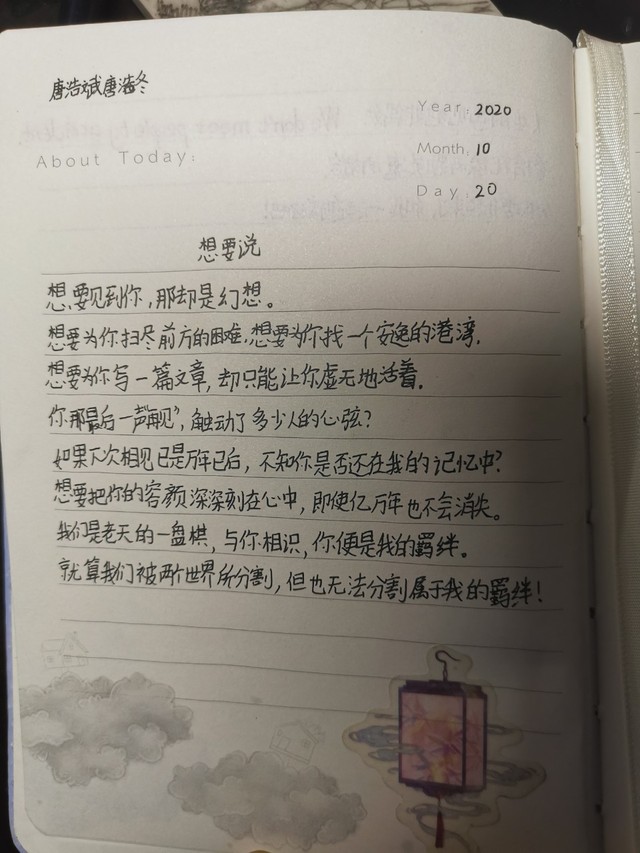 唐浩斌唐浩冬
Year: 2020
About Today:
Month: 10
Day 20
想要说
想要见到你,那却是幻想。
想要为你扫尽前方的困难,想要为你找一个安逸的港湾.
想要为你写一篇文章,却只能让你虚无地活着.
你那最后一声“再见”,触动了多少人的心弦?
如果下次相见已是万年已后,不知你是否还在我的记忆中?
想要把你的容颜深深刻在心中,即使亿万年也不会消失。
我们是老天的一盘棋,与你相识,你便是我的羁绊。
就算我们被两个世界所分割,但也无法分割属于我的羁绊!